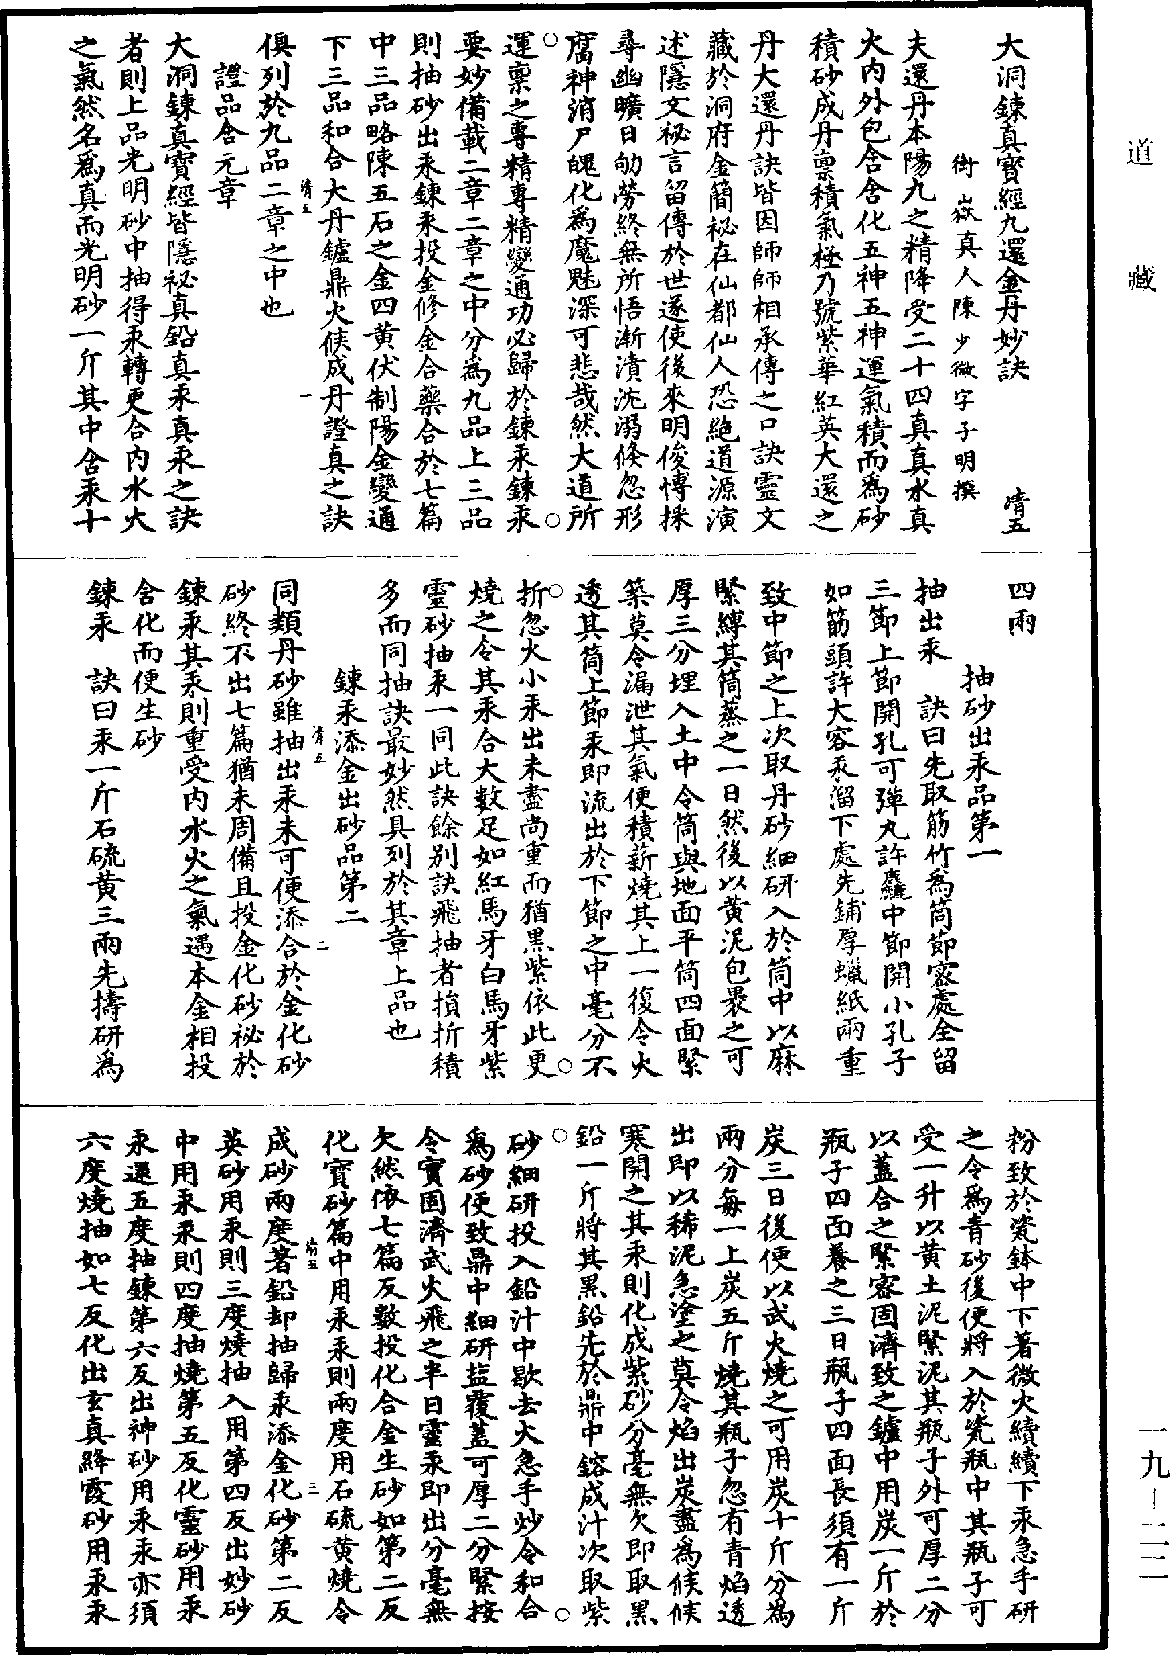 道藏
大洞鍊真寶經九還金丹妙訣　清五
衡嶽真人陳少微字子明撰
夫還丹本陽九之精降受二十四真真水真
火內外包含含化五神五神運氣積而為砂
積砂成丹禀積氣極乃號紫華紅英大還之
丹大還丹訣皆因師師相承傳之口訣靈文
藏於洞府金簡祕在仙都仙人恐絕道源演
述隱文祕言留傳於世遂使後來明俊博採
尋幽曠日劬勞終無所悟漸漬沈溺倏忽形
腐神消尸魄化為魔魅深可悲哉然大道所
運禀之專精專精變通功必歸於鍊汞鍊汞
要妙備載二章二章之中分為九品上三品
則抽砂出汞鍊汞投金修金合藥合於七篇
中三品略陳五石之金四黄伏制陽金變通
下三品和合大丹鑪鼎火候成丹證真之訣
清五　一
俱列於九品二章之中也
證品含元章
大洞鍊真寶經皆隱祕真鉛真汞真汞之訣
者則上品光明砂中抽得汞轉更合內水火
之氣然名為真而光明砂一斤其中含汞十
四兩
抽砂出汞品第一
抽出汞　訣曰先取筋竹為筒節密處全留
三節上節開孔可彈丸許麤中節開小孔子
如筋頭許大容汞溜下處先鋪厚蠟紙兩重
致中節之上次取丹砂細研入於筒中以麻
緊縛其筒蒸之一日然後以黄泥包裹之可
厚三分埋入土中令筒與地面平筒四面緊
築莫令漏泄其氣便積薪燒其上一復令火
透其筒上節汞即流出於下節之中毫分不
折忽火小汞出未盡尚重而猶黒紫依此更
燒之令其汞合大數足如紅馬牙白馬牙紫
靈砂抽汞一同此訣餘別訣飛抽者損折積
多而同抽訣最妙然具列於其章上品也
鍊汞添金出砂品第二
清五　二
同類丹砂雖抽出汞未可便添合於金化砂
砂終不出七篇猶未周備且投金化砂祕於
鍊汞其汞則重受內水火之氣遇本金相投
含化而便生砂
鍊汞　訣曰汞一斤石硫黄三兩先擣研為
粉致於瓷鉢中下著微火續續下汞急手研
之令為青砂後便將入於瓷瓶中其瓶子可
受一升以黄土泥緊泥其瓶子外可厚二分
以蓋合之緊密固濟致之鑪中用炭一斤於
瓶子四面養之三日瓶子四面長須有一斤
炭三日後便以武火燒之可用炭十斤分為
兩分每一上炭五斤燒其瓶子忽有青焰透
出即以稀泥急塗之莫令焰出炭盡為候候
寒開之其汞則化成紫砂分毫無欠即取黒
鉛一斤將其黒鉛先於鼎中鎔成汁次取紫
砂細研投入鉛汁中歇去火急手炒令和合
為砂便致鼎中細研盐覆蓋可厚二分緊按
令實固濟武火飛之半日靈汞即出分毫無
欠然依七篇反數投化合金生砂如第二反
化寶砂篇中用汞汞則兩度用石硫黄燒令
清五　三
成砂兩度著鉛却抽歸汞添金化砂第二反
英砂用汞則三度燒抽入用第四反出妙砂
中用汞汞則四度抽燒第五反化靈砂用汞
汞還五度抽鍊第六反出神砂用汞汞亦須
六度燒抽如七反化出玄真絳霞砂用汞汞
一九—二二